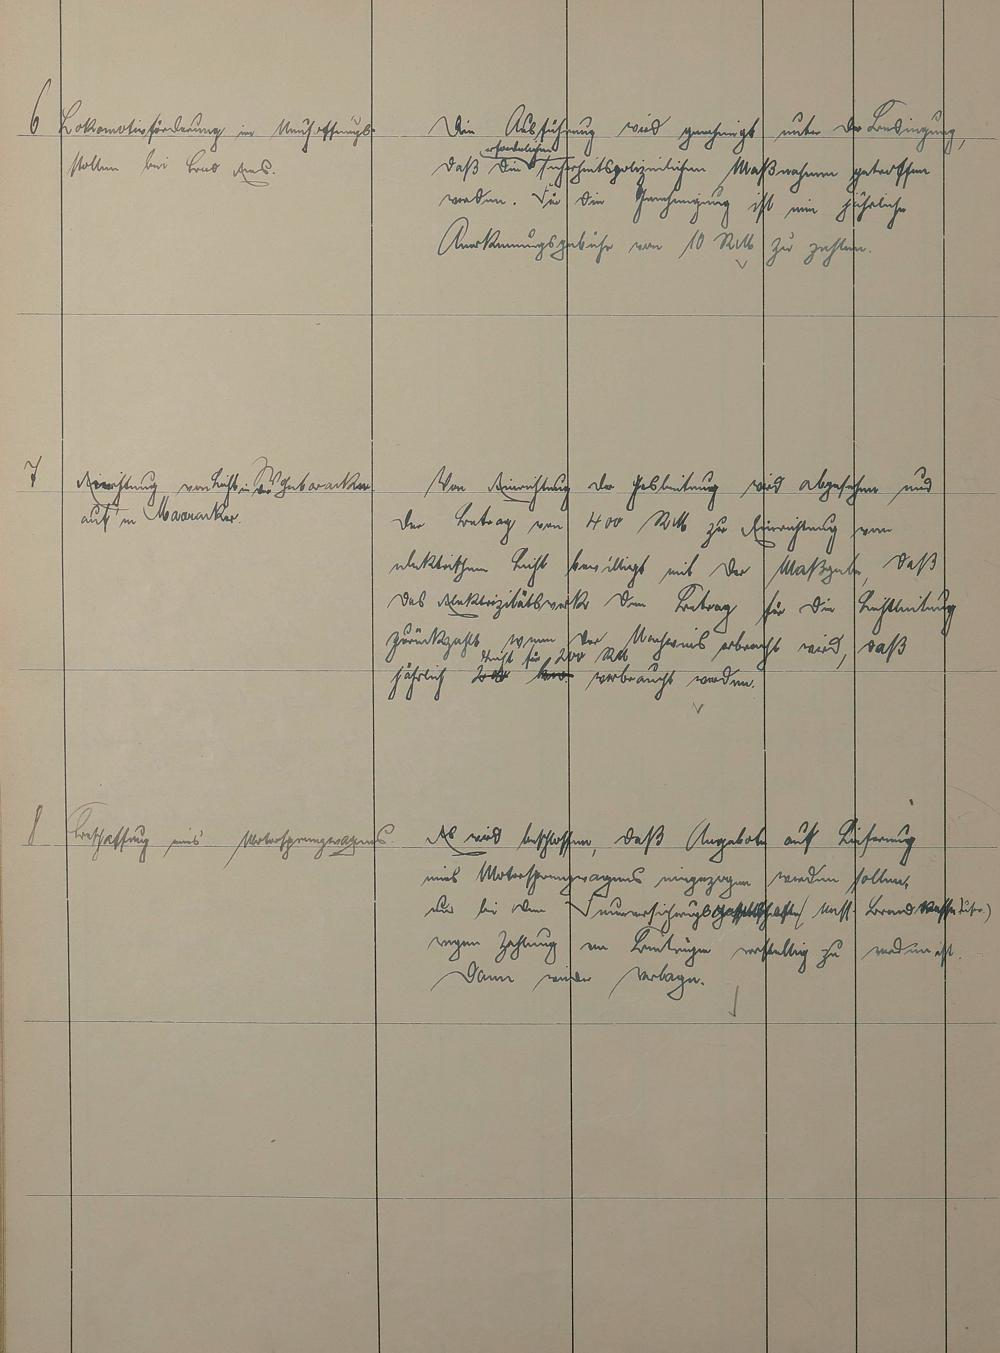 6 Lokomotivförderung im Neuhoffnungs-
stollen bei Bad Ems.
Die Ausführung wird genehmigt unter der Bedingung,
daß die erforderlichen sicherheitspolizeilichen Maßnahmen getroffen
werden. Für die Genehmigung ist eine jährliche
Anerkennungsgebühr von 10 RM zu zahlen.
7 Einrichtung von Licht in der Wohnbaracke
auf'm
Von Einrichtung der Gasleitung wird abgesehen und
der Betrag von 400 RM zur Einrichtung von
elektrischem Licht bewilligt mit der Maßgabe, daß
das Elektrizitätswerk den Betrag für die Lichtleitung
zurückzahlt, wenn der Nachweis erbracht wird, daß
jährlich Licht für 200 RM verbraucht werden.
8 Beschaffung eines Motorsprengwagens.
Es wird beschlossen, daß Angebote auf Lieferung
eines Motorsprengwagens eingezogen werden sollen,
und bei den Feuerversicherungsgesellschaften (Nass. Brandkasse
wegen Zahlung von Beiträgen vorstellig zu werden ist.
Dann wieder Vorlage.